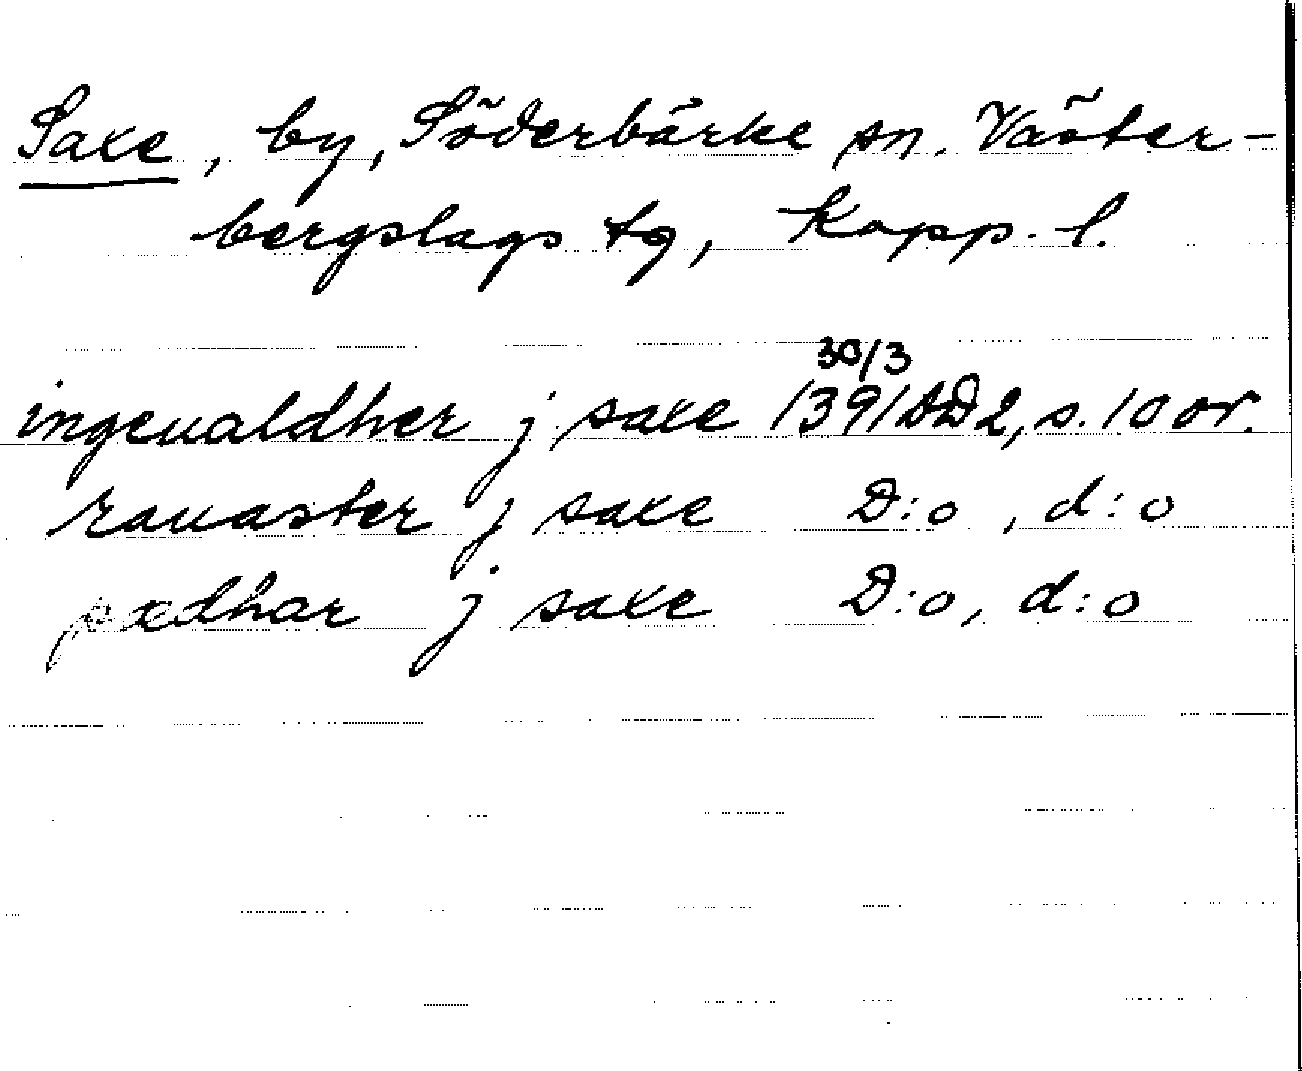 Saxe, by, Söderbärke sn. Väster-
bergslags tg, Kopp. l.
30/3
ingeualdher j saxe 1391 DD 2, s. 10 or.
rauaster j saxe D:o, d:o
pædhar j saxe D:o, d:o